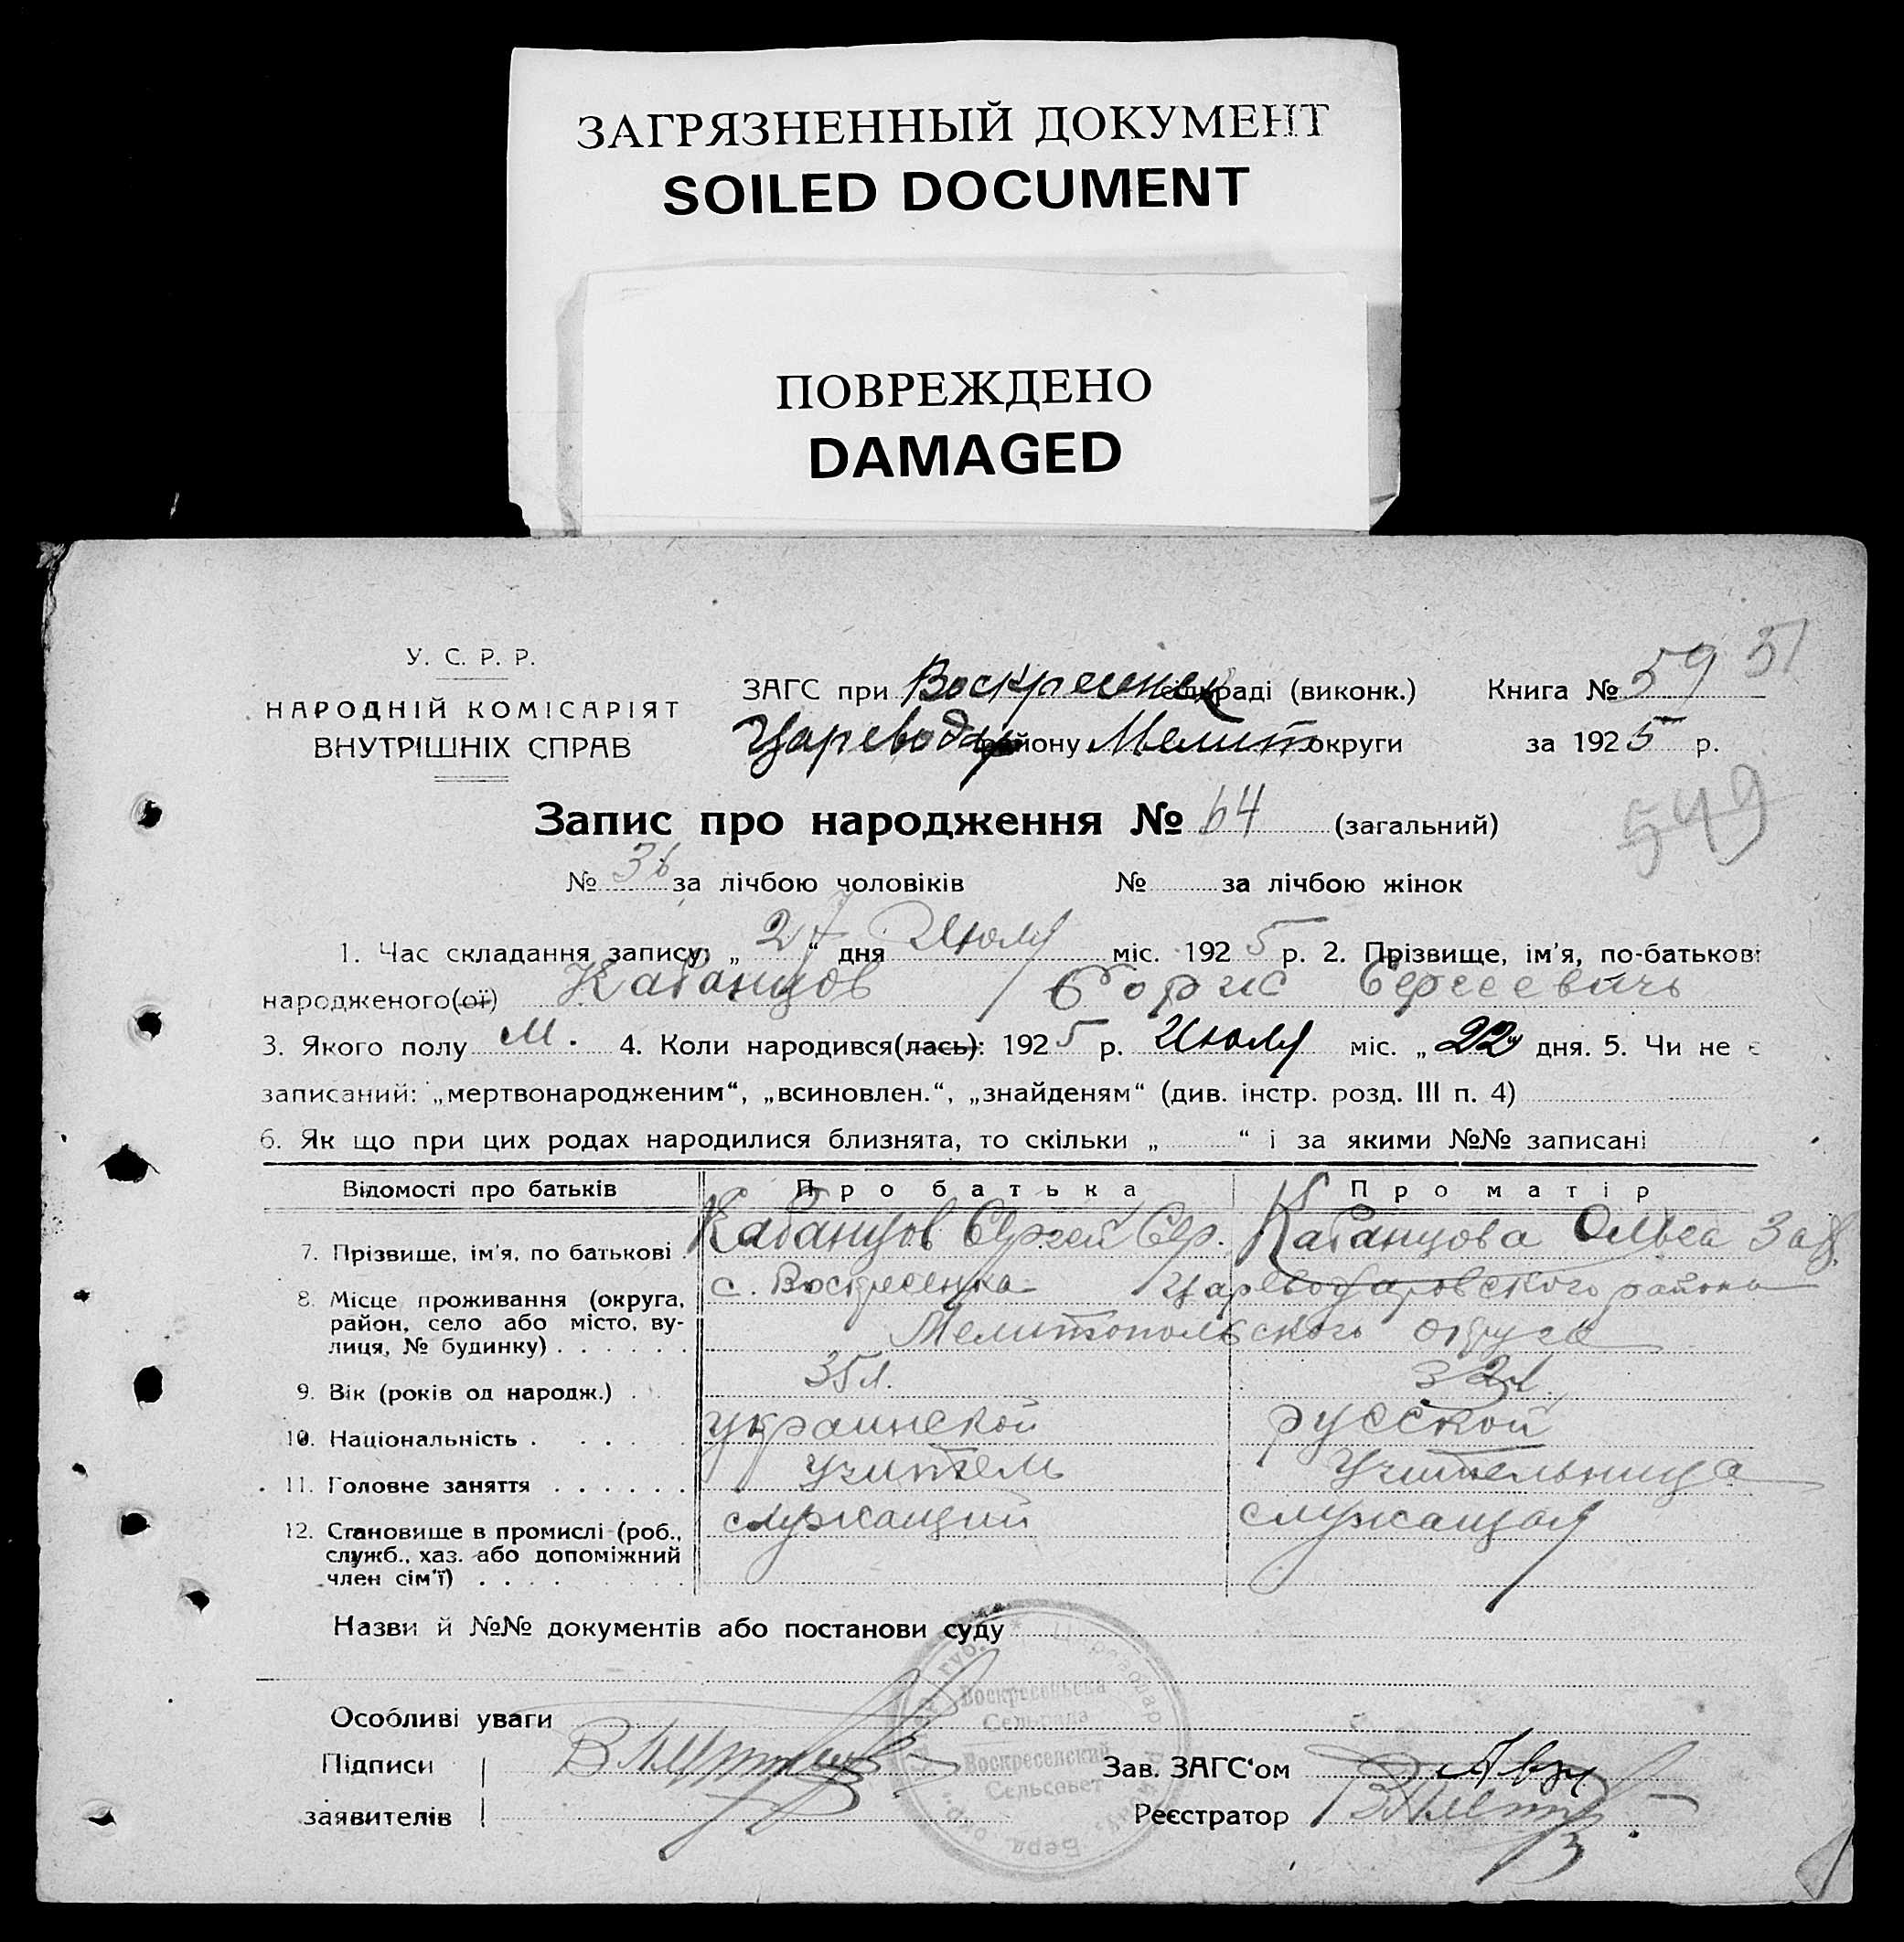 ЗАГРЯЗНЕННЫЙ ДОКУМЕНТ
SOILED DOCUMENT
ПОВРЕЖДЕНО
DAMAGED
У. С. Р. Р.
НАРОДНІЙ КОМІСАРІЯТ
ВНУТРІШНІХ СПРАВ
ЗАГС при Воскресенск раді (виконк.) Книга № 59 51
Цареводар району Мелит округи за 1925 р.
Запис про народження № 64 (загальний)
549
№ 36 за лічбою чоловіків № за лічбою жінок
1. Час складання запису: „27“ дня Июля міс. 1925 р. 2. Прізвище, ім'я, по-батькові
народженого(ої) Кабанцов Борис Сергеевичь
3. Якого полу М. 4. Коли народився(лась): 1925 р. Июля міс. „22 дня. 5. Чи не є
записаний: „мертвонародженим“, „всиновлен.“, „знайденям“ (див. інстр. розд. III п. 4)
6. Як що при цих родах народилися близнята, то скільки „ “ і за якими №№ записані
Відомості про батьків Про батька Про матір
7. Прізвище, ім'я, по батькові Кабанцов Сергей Сер. Кабанцова Ольга Зах.
8. Місце проживання (округа, с. Воскресенка Цареводаровского района
район, село або місто, ву- Мелитопольского округа
лиця, № будинку)
9. Вік (років од народж.) 35 л. 32 л.
10. Національність украинской русской
11. Головне заняття учитель учительница
12. Становище в промислі (роб., служащий служащая
служб., хаз. або допоміжний
член сім'ї)
Назви й №№ документів або постанови суду
Особливі уваги
Підписи
заявителів
Зав. ЗАГС'ом
Реєстратор
Воскресенська
Сельрада
Воскресенский
Сельсовет